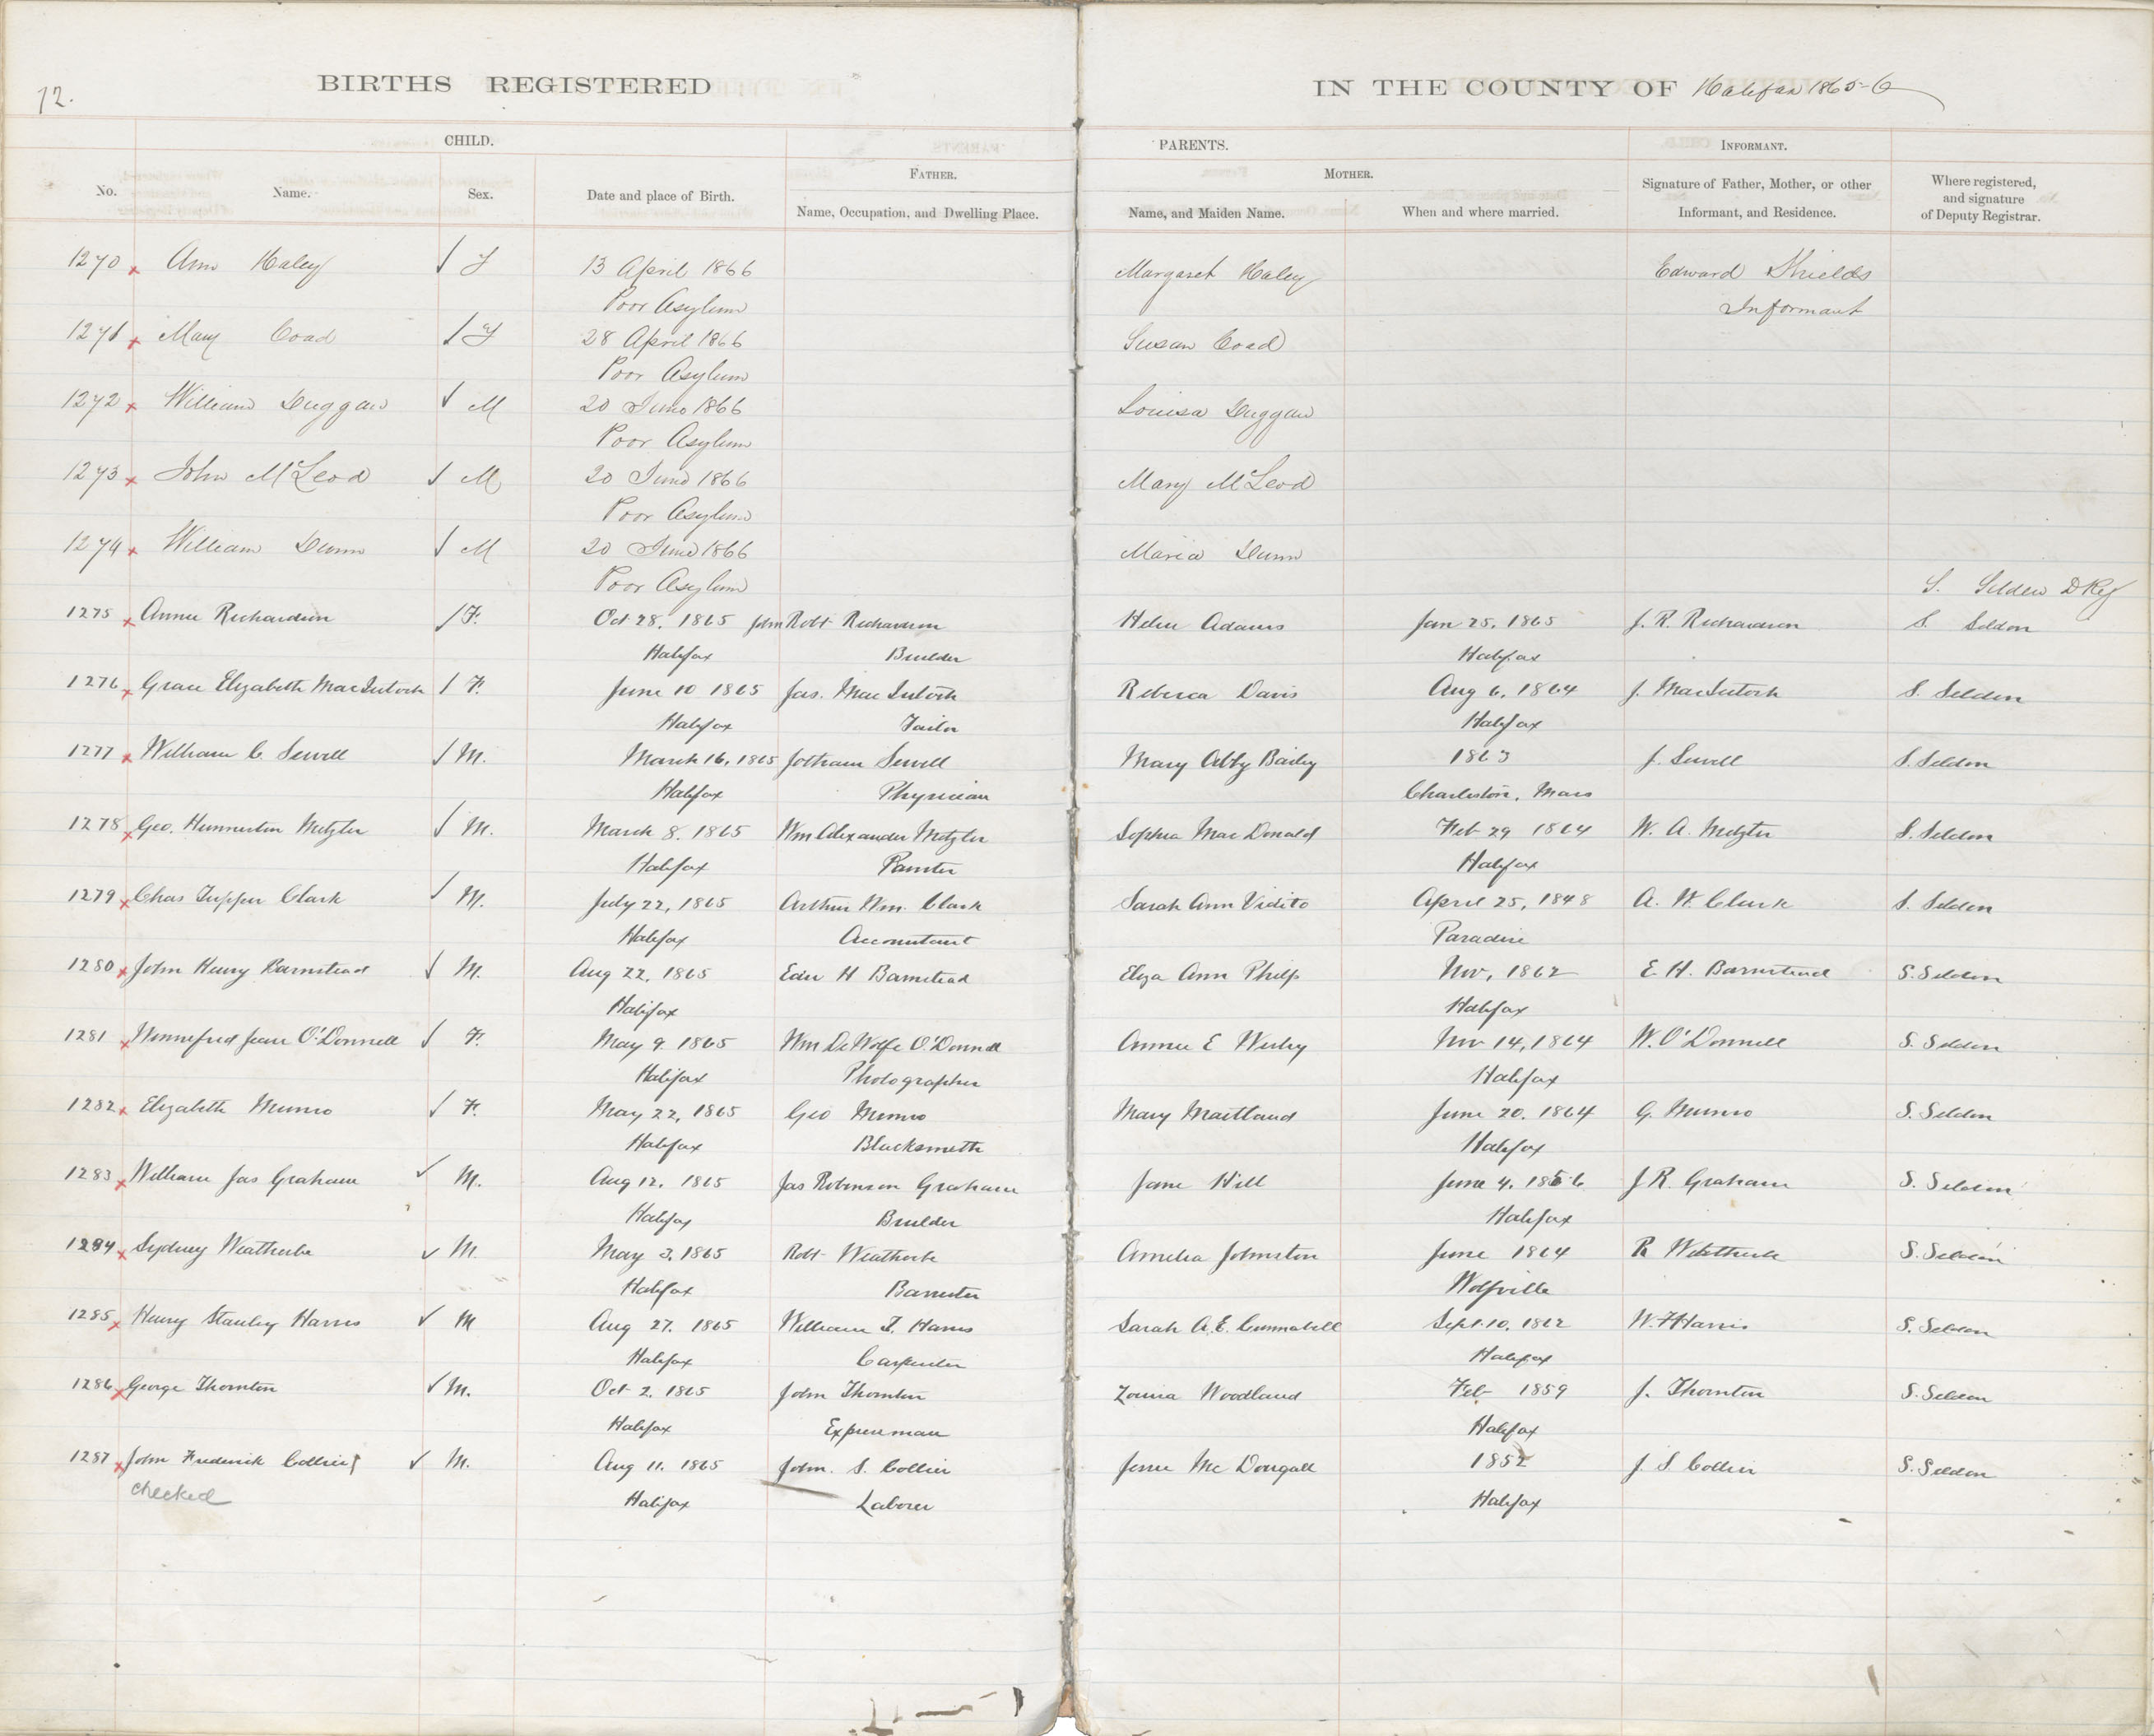 72.
BIRTHS REGISTERED IN THE COUNTY OF Halifax 1865-6
CHILD. PARENTS. INFORMANT.
FATHER. MOTHER.
No. Name. Sex. Date and place of Birth. Name, Occupation, and Dwelling Place. Name, and Maiden Name. When and where married. Signature of Father, Mother, or other Informant, and Residence. Where registered, and signature of Deputy Registrar.
1270 x Ann Haley ✓ F 13 April 1866 Margaret Haley Edward Shields
Poor Asylum Informant
1271 x Mary Coad ✓ F 28 April 1866 Susan Coad
Poor Asylum
1272 x William Duggan ✓ M 20 June 1866 Louisa Duggan
Poor Asylum
1273 x John McLeod ✓ M 20 June 1866 Mary McLeod
Poor Asylum
1274 x William Dunn ✓ M 20 June 1866 Maria Dunn
Poor Asylum S. Selden D Reg
1275 x Annie Richardson ✓ F. Oct 28. 1865 John Robt Richardson Helen Adams Jan 25. 1865 J. R. Richardson S. Seldon
Halifax Builder Halifax
1276 x Grace Elizabeth MacIntosh ✓ F. June 10 1865 Jas. MacIntosh Rebecca Davis Aug 6, 1864 J. MacIntosh S. Seldon
Halifax Tailor Halifax
1277 x William C. Sewell ✓ M. March 16, 1865 Jotham Sewell Mary Abby Bailey 1863 J. Sewell S. Seldon
Halifax Physician Charleston, Mass
1278 x Geo. Metzler ✓ M. March 8. 1865 Wm Alexander Metzler Sophia MacDonald Feb 29 1864 W. A. Metzler S. Seldon
Halifax Painter Halifax
1279 x Chas Tupper Clark ✓ M. July 22, 1865 Arthur Wm. Clark Sarah Ann Vidito April 25, 1848 A. W. Clark S. Seldon
Halifax Accountant Paradise
1280 x John Henry Barnstead ✓ M. Aug 22, 1865 Edw H Barnstead Eliza Ann Philp Nov, 1862 E. H. Barnstead S. Seldon
Halifax Halifax
1281 x Winnefred Jean O'Donnell ✓ F. May 9. 1865 Wm DeWolfe O'Donnell Annie E Wesley Nov 14, 1864 W. O'Donnell S. Seldon
Halifax Photographer Halifax
1282 x Elizabeth Munro ✓ F. May 22, 1865 Geo Munro Mary Maitland June 20. 1864 G. Munro S. Seldon
Halifax Blacksmith Halifax
1283 x William Jas Graham ✓ M. Aug 12. 1865 Jas Robinson Graham Jane Hill June 4. 1856 J R. Graham S. Seldon
Halifax Builder Halifax
1284 x Sydney Weatherbe ✓ M. May 3, 1865 Robt Weatherbe Amelia Johnston June 1864 R Weatherbe S. Seldon
Halifax Barrister Wolfville
1285 x Henry Stanley Harris ✓ M Aug 27. 1865 William F. Harris Sarah A. E. Cunnabell Sept. 10, 1862 W. F Harris S. Seldon
Halifax Carpenter Halifax
1286 x George Thornton ✓ M. Oct 2. 1865 John Thornton Woodland Feb 1859 J. Thornton S. Seldon
Halifax Expressman Halifax
1287 x John Frederick Collier ✓ M. Aug 11. 1865 John. S. Collier Jessie McDougall 1852 J. S. Collier S. Seldon
checked Halifax Laborer Halifax